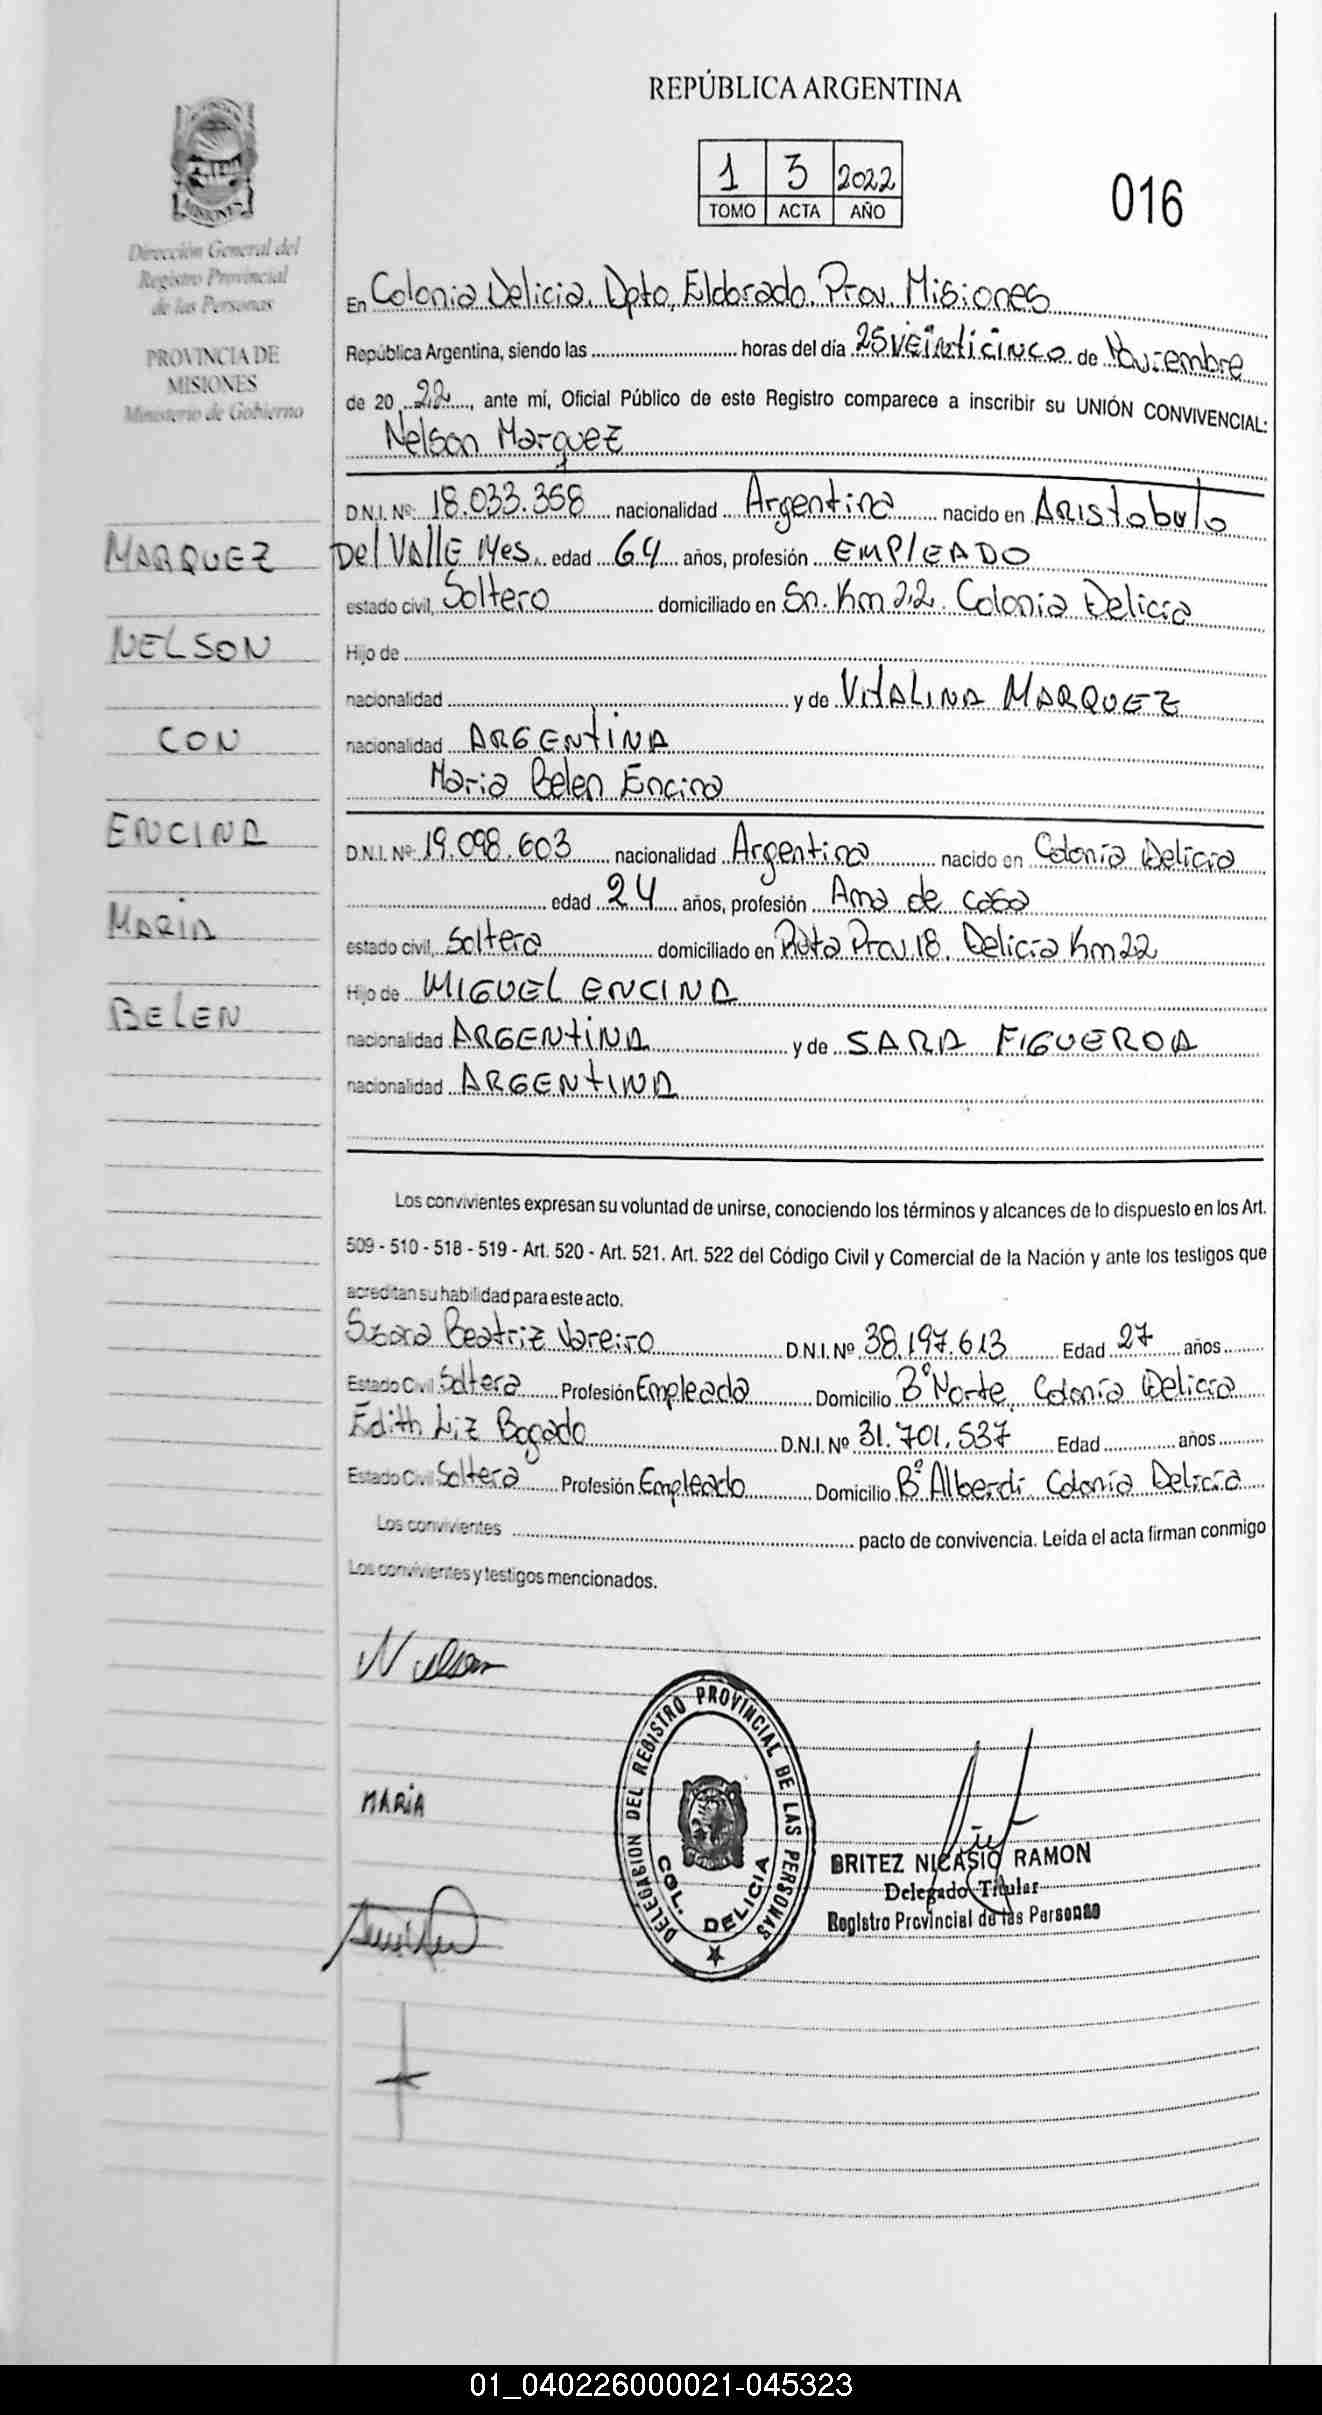 REPÚBLICA ARGENTINA
1 3 2022
TOMO ACTA AÑO
016
Dirección General del
Registro Provincial
de las Personas
PROVINCIA DE
MISIONES
Ministerio de Gobierno
MARQUEZ
NELSON
CON
ENCINA
MARIA
BELEN
En Colonia Delicia. Dpto. Eldorado. Prov. Misiones
República Argentina, siendo las ........ horas del día 25 VEinticinco de Noviembre
de 20 22, ante mí, Oficial Público de este Registro comparece a inscribir su UNIÓN CONVIVENCIAL:
Nelson Marquez
D.N.I. Nº: 18.033.358 nacionalidad Argentina nacido en ARistobulo
Del VAllE Mes. edad 64 años, profesión EMPlEADO
estado civil, Soltero domiciliado en Sn. Km 22. Colonia Delicia
Hijo de
nacionalidad ........ y de VitALINA MARQUEZ
nacionalidad ARGENtiNA
Maria Belen Encina
D.N.I. Nº 19.098.603 nacionalidad Argentina nacido en Colonia Delicia
edad 24 años, profesión Ama de casa
estado civil, Soltera domiciliado en Ruta Prov 18. Delicia Km 22
Hijo de MIGUEL ENCINA
nacionalidad ARGENtiNA y de SARA FIGUEROA
nacionalidad ARGENtINA
Los convivientes expresan su voluntad de unirse, conociendo los términos y alcances de lo dispuesto en los Art.
509 - 510 - 518 - 519 - Art. 520 - Art. 521. Art. 522 del Código Civil y Comercial de la Nación y ante los testigos que
acreditan su habilidad para este acto.
Beatriz Vareiro D.N.I. Nº 38.197.613 Edad 27 años
Estado Civil Soltera Profesión Empleada Domicilio Bº Norte. Colonia Delicia
Edith Liz Bogado D.N.I. Nº 31.701.537 Edad ........ años
Estado Civil Soltera Profesión Empleado Domicilio Bº Alberdi Colonia Delicia
Los convivientes ........ pacto de convivencia. Leída el acta firman conmigo
Los convivientes y testigos mencionados.
Nelson
MARiA
DELEGACION DEL REGISTRO PROVINCIAL DE LAS PERSONAS
COL. DELICIA
BRITEZ NICASIO RAMON
Delegado Titular
Registro Provincial de las Personas
01_040226000021-045323